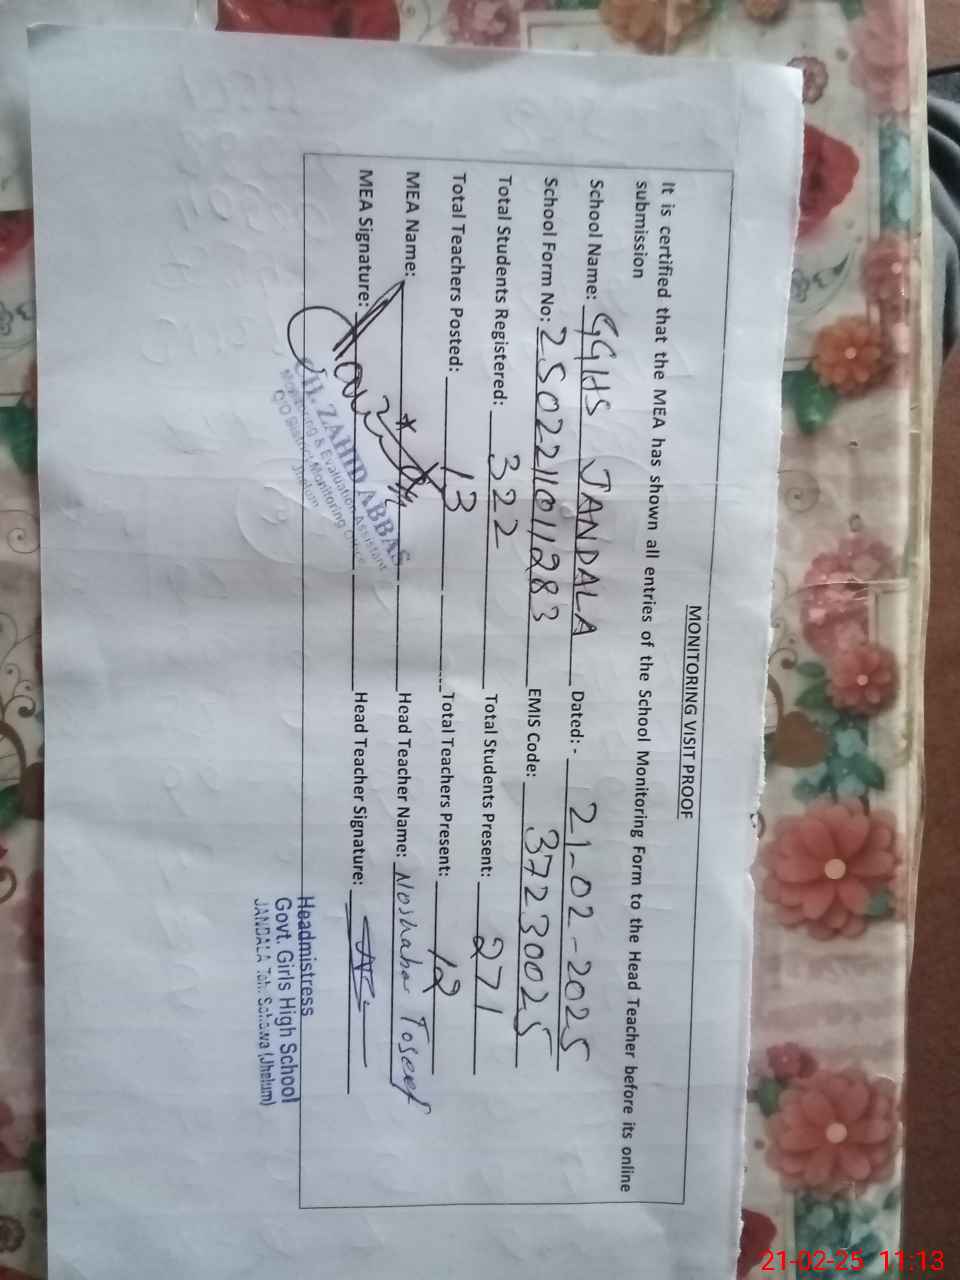 MONITORING VISIT PROOF
It is certified that the MEA has shown all entries of the School Monitoring Form to the Head Teacher before its online
submission
School Name: GGHS JANDALA Dated: - 21-02-2025
School Form No: 250221101283 EMIS Code: 37230025
Total Students Registered: 322 Total Students Present: 271
Total Teachers Posted: 13 Total Teachers Present: 12
MEA Name: Head Teacher Name: Noshaba Toseef
MEA Signature: Head Teacher Signature:
CH. ZAHID ABBAS
Monitoring & Evaluation Assistant
O/O District Monitoring Office
Jhelum
Headmistress
Govt. Girls High School
JANDALA Teh. Sohawa (Jhelum)
21-02-25 11:13